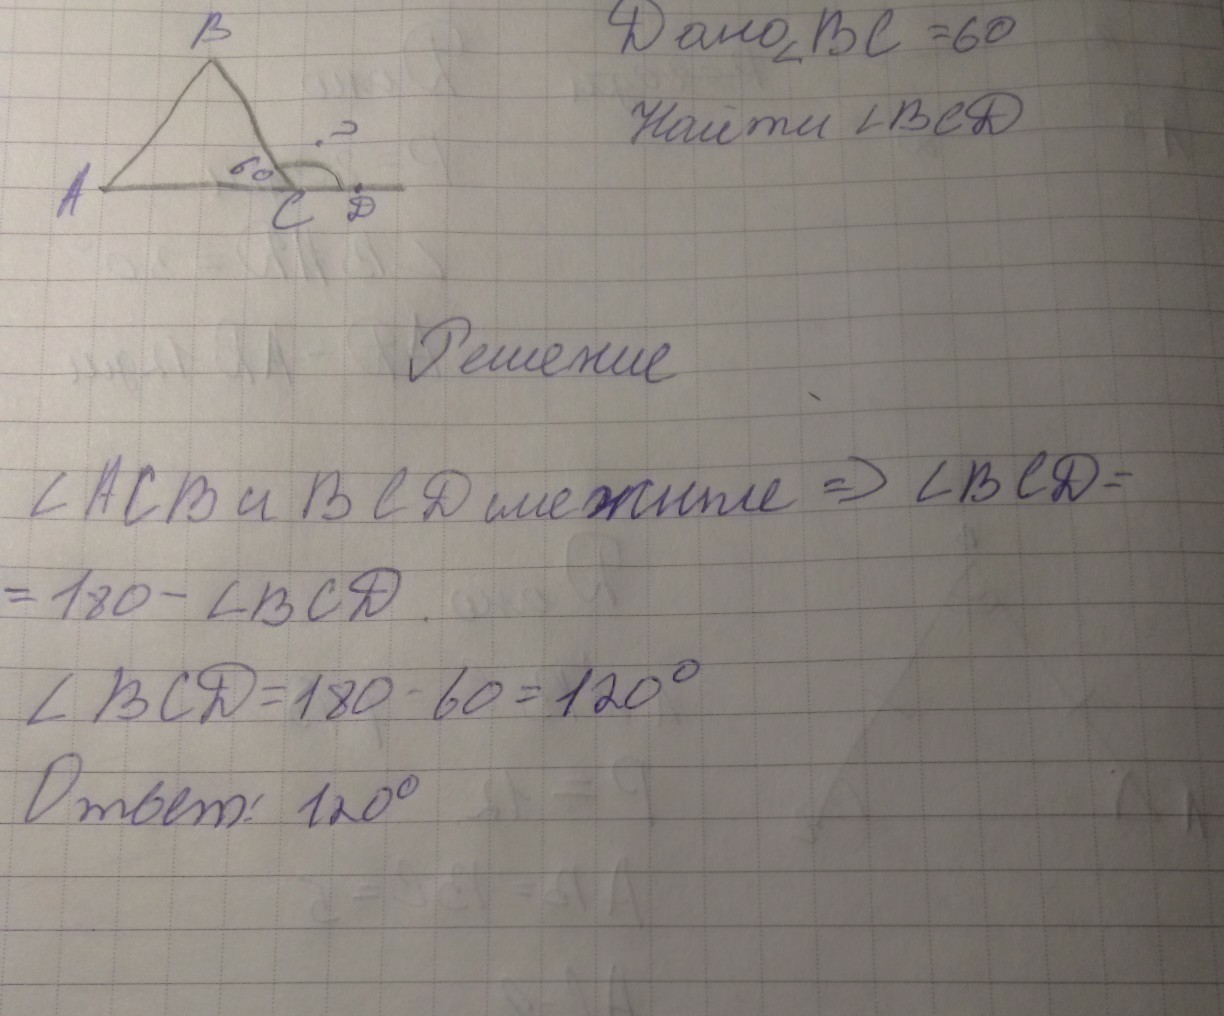 B
Дано ∠BC = 60
Найти ∠BCD
?
60
A
C
D
Решение
∠ACB и BCD смежные => ∠BCD =
= 180 - ∠BCD.
∠BCD = 180 - 60 = 120°
Ответ: 120°